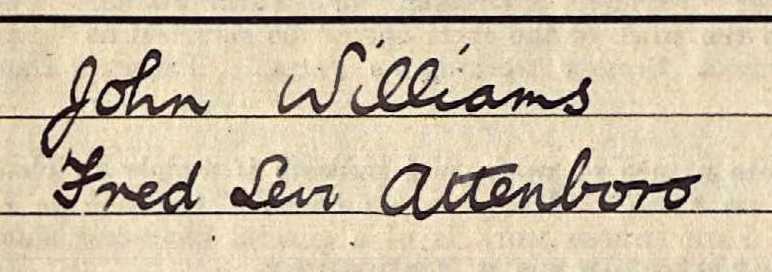 John Williams
Fred Levi Attenboro